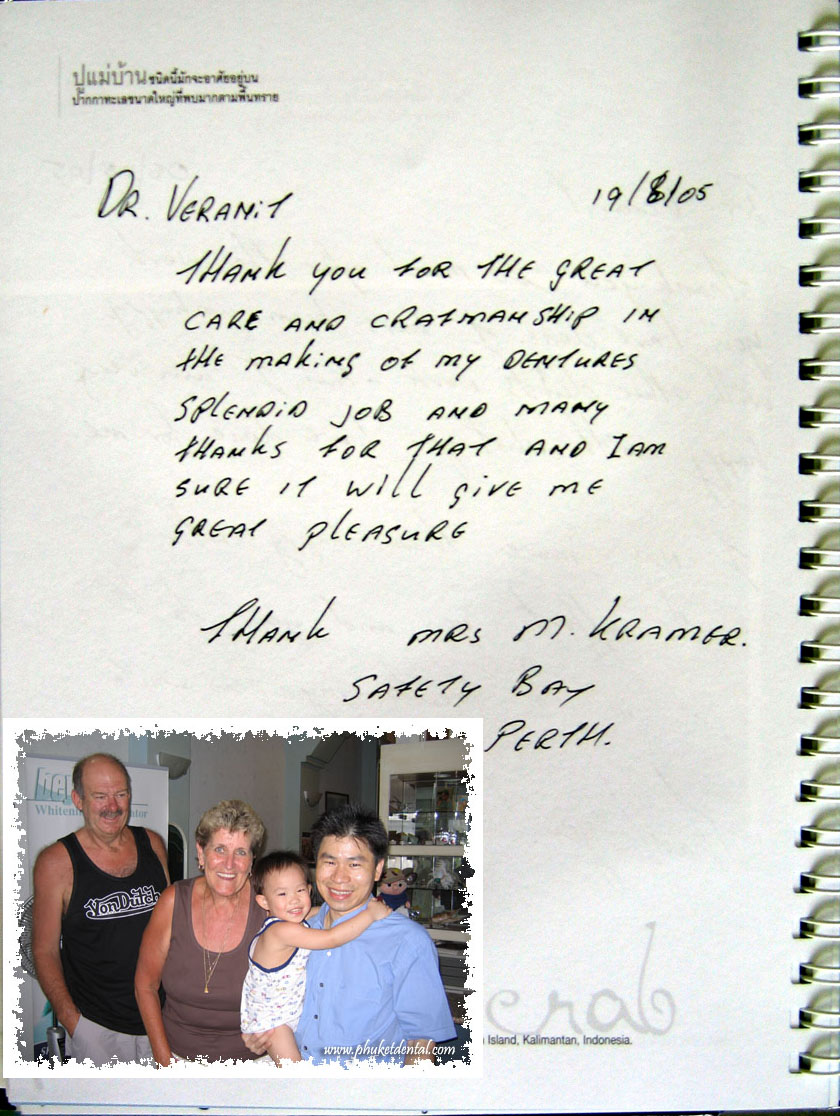 ปูแม่บ้าน ชนิดนี้มักจะอาศัยอยู่บน
ปากกาทะเลขนาดใหญ่ที่พบมากตามพื้นทราย
DR. VERANIT 19/8/05
THANK YOU FOR THE GREAT
CARE AND CRAFMANSHIP IN
THE MAKING OF MY DENTURES
SPLENDID JOB AND MANY
THANKS FOR THAT AND I AM
SURE IT WILL GIVE ME
GREAT PLEASURE
THANK MRS M. KRAMER.
SAFETY BAY
PERTH.
Von Dutch
www.phuketdental.com
crab
Island, Kalimantan, Indonesia.